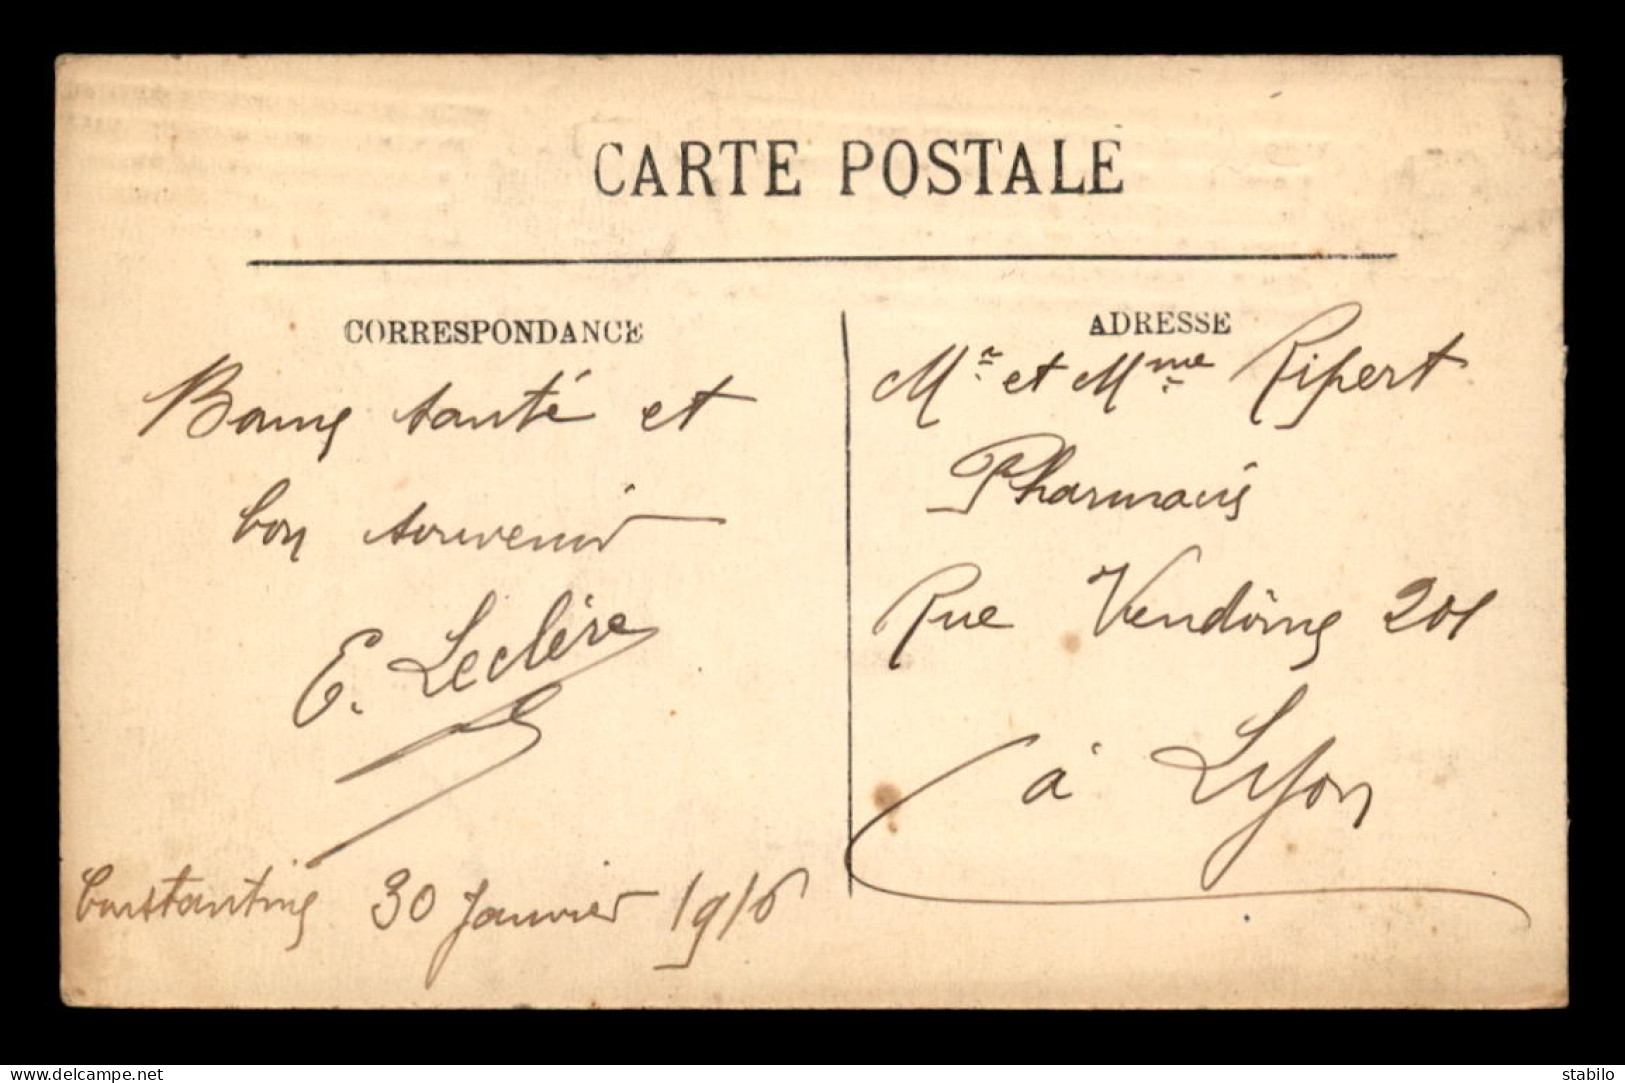 CARTE POSTALE
CORRESPONDANCE
Bonne santé et
bon souvenir
E. Leclère
Constantine 30 Janvier 1916
ADRESSE
Mr et Mme Ripert
Pharmacie
Rue Vendôme 201
à Lyon
www.delcampe.net
stabilo